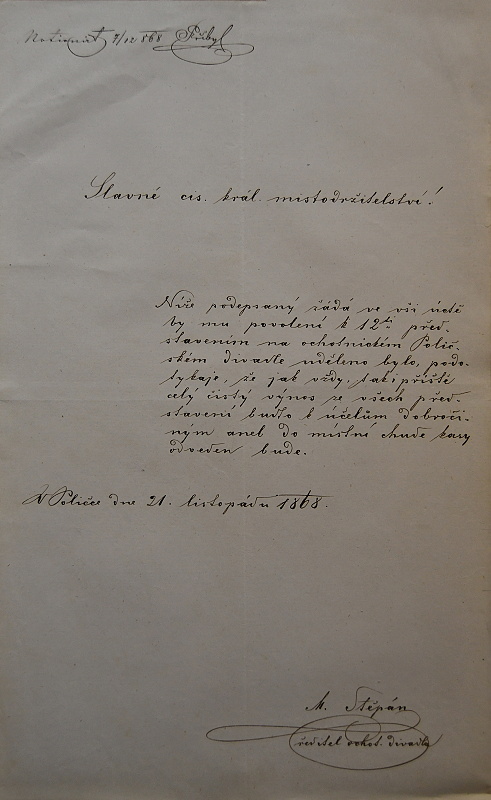 Notirnut 7/12 868 Přibyl
Slavné cis. král. mistodržitelství!
Níže podepsaný žádá ve vší úctě
by mu povolení k 12ti před-
stavením na ochotnickém Polič-
ském divadle uděleno bylo, podo-
tykaje, že jak vždy, tak i příště
celý čistý výnos ze všech před-
stavení buďto k účelům dobroči-
ným aneb do místní chudé kasy
odveden bude.
V Poličce dne 21. listopádu 1868.
M. Štěpán
ředitel ochot. divadla